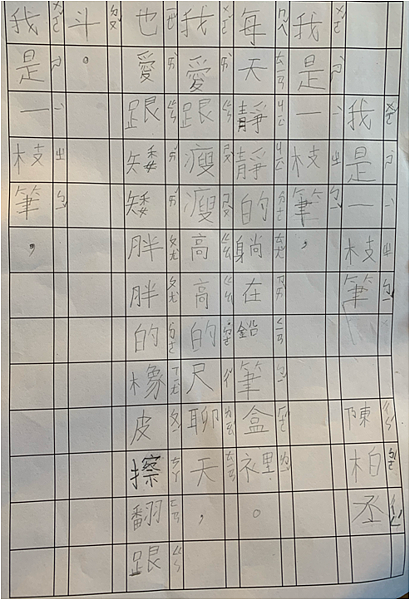 我是一枝筆 陳柏丞
我是一枝筆，
每天靜靜的躺在鉛筆盒裡。
我愛跟瘦瘦高高的尺聊天，
也愛跟矮矮胖胖的橡皮擦翻跟
斗。
我是一枝筆，